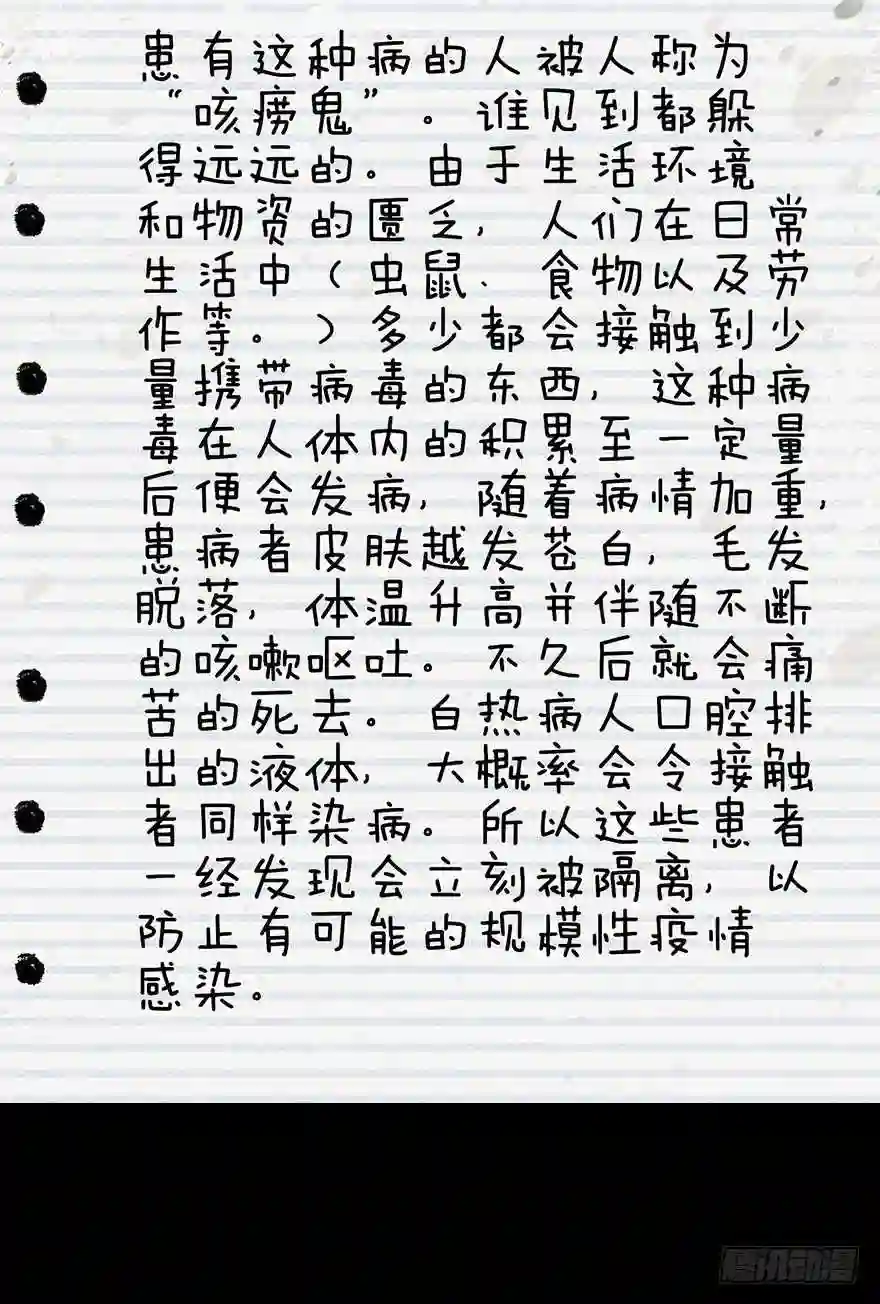 患有这种病的人被人称为
“咳痨鬼”。谁见到都躲
得远远的。由于生活环境
和物资的匮乏,人们在日常
生活中(虫鼠、食物以及劳
作等。)多少都会接触到少
量携带病毒的东西,这种病
毒在人体内的积累至一定量
后便会发病,随着病情加重,
患病者皮肤越发苍白,毛发
脱落,体温升高并伴随不断
的咳嗽呕吐。不久后就会痛
苦的死去。白热病人口腔排
出的液体,大概率会令接触
者同样染病。所以这些患者
一经发现会立刻被隔离,以
防止有可能的规模性疫情
感染。